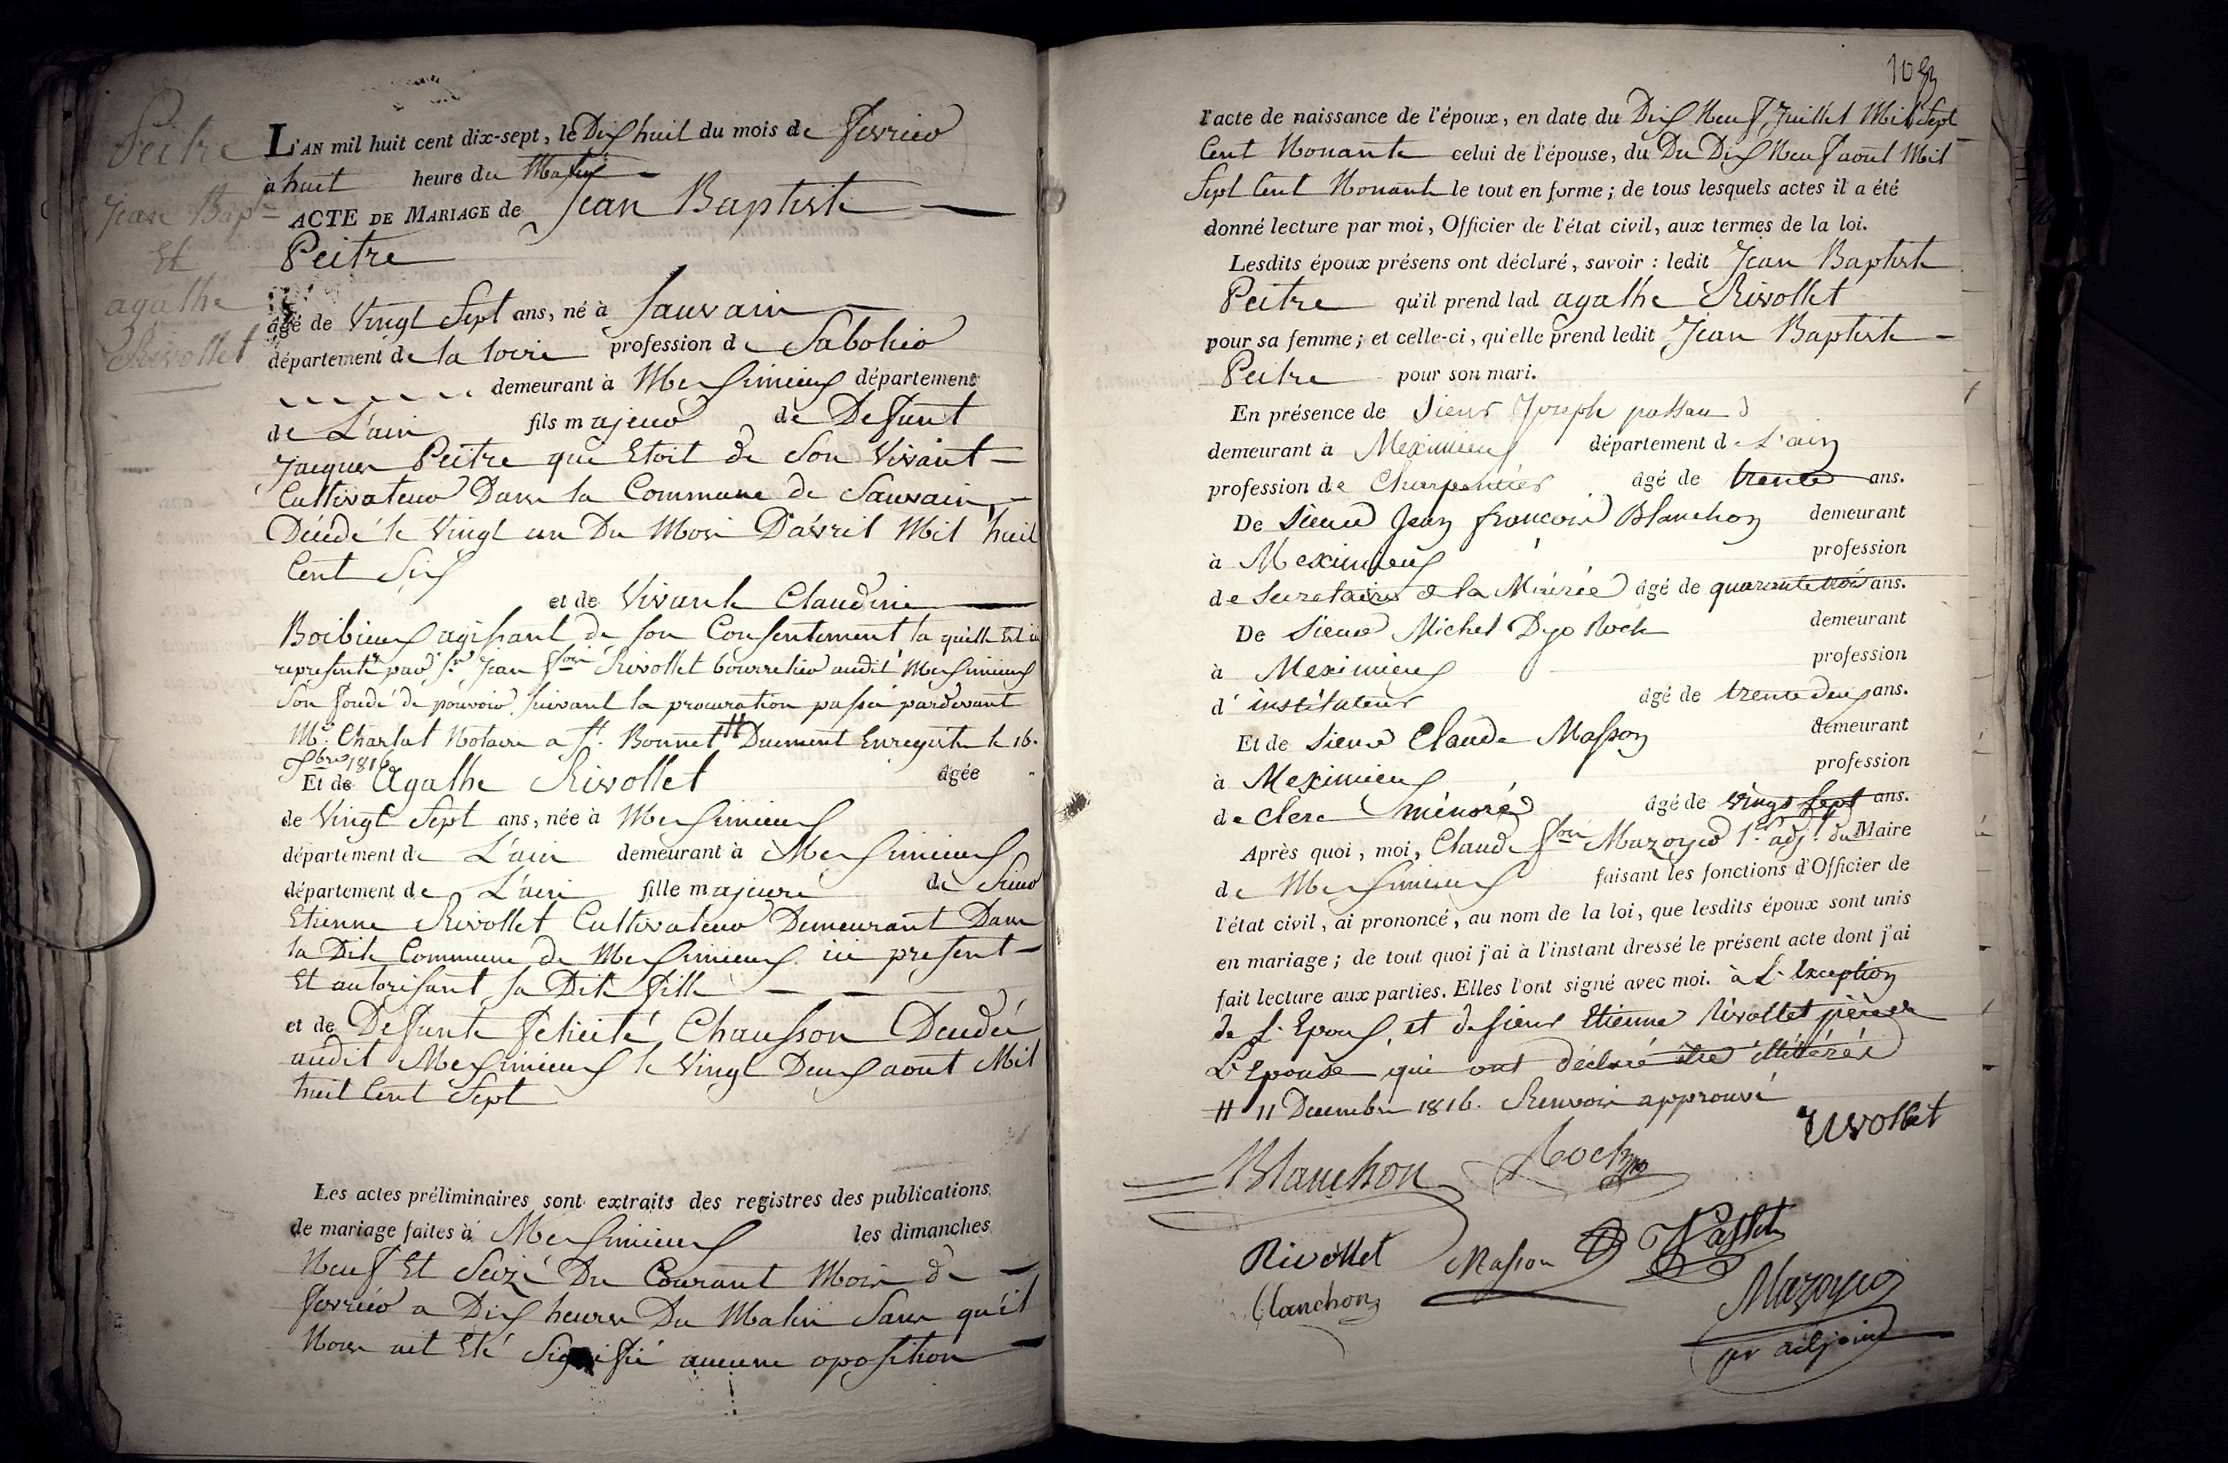 Peitre
Jean Bapte
Et
agathe
Rivollet
L'AN mil huit cent dix-sept, le Dix huit du mois de fevrier
à huit heure du Matin
ACTE DE MARIAGE de Jean Baptiste
Peitre
âgé de Vingt Sept ans, né à Sauvain
département de la loire profession de Sabotier
demeurant à Meximieux département
de L'ain fils majeur de Deffunt
Jacques Peitre qui Etoit de Son Vivant
Cultivateur Dans la Commune de Sauvain
Décédé le Vingt un Du Mois D'avril Mil huit
Cent Six
et de Vivante Claudine
Boibieux agissant de son Consentement la quelle Est ici
representée par Sr Jean fçois Rivollet bourrelier audit Meximieux
Son fondé de pouvoir Suivant la procuration passée pardevant
Me Charlat Notaire a St Bonnet # Duement Enregistré le 16.
Xbre 1816
Et de Agathe Rivollet âgée
de Vingt Sept ans, née à Meximieux
département de L'ain demeurant à Meximieux
département de L'ain fille majeure de Sieur
Etienne Rivollet Cultivateur Demeurant Dans
la Dite Commune de Meximieux ici present
Et autorisant sa Dite fille
et de Deffunte Felicité Chausson Decedée
audit Meximieux le Vingt Deux aout Mil
huit Cent Sept
Les actes préliminaires sont extraits des registres des publications
de mariage faites à Meximieux les dimanches
Neuf Et Seize Du Courant Mois de
fevrier a Dix heures Du Matin Sans qu'il
Nous ait Eté Signifié aucune oposition
l'acte de naissance de l'époux, en date du Dix Neuf Juillet Mil Sept
Cent Nonante celui de l'épouse, du Du Dix Neuf aout Mil
Sept Cent Nonante le tout en forme; de tous lesquels actes il a été
donné lecture par moi, Officier de l'état civil, aux termes de la loi.
Lesdits époux présens ont déclaré, savoir : ledit Jean Baptiste
Peitre qu'il prend lad agathe Rivollet
pour sa femme; et celle-ci, qu'elle prend ledit Jean Baptiste
Peitre pour son mari.
En présence de Sieur Joseph
demeurant à Meximieux département de L'ain
profession de Charpentier âgé de trente ans.
De Sieur Jean françois Blanchon demeurant
à Meximieux profession
de Secretaire de la Mairée âgé de quarante trois ans.
De Sieur Michel Dyo Roch demeurant
à Meximieux profession
d'instituteur âgé de trente deux ans.
Et de Sieur Claude Masson demeurant
à Meximieux profession
de Clerc minoré âgé de vingt sept ans.
Après quoi, moi, Claude fçois Mazoyer 1er adjt du Maire
de Meximieux faisant les fonctions d'Officier de
l'état civil, ai prononcé, au nom de la loi, que lesdits époux sont unis
en mariage; de tout quoi j'ai à l'instant dressé le présent acte dont j'ai
fait lecture aux parties. Elles l'ont signé avec moi. à L'exception
de L'Epoux, et de sieur Etienne Rivollet père de
L'Epouse qui ont déclaré être illitérés
# 11 Decembre 1816. Renvoi approuvé
Rivollet
Blanchon Roch
Rivollet Masson
Blanchon Mazoyer
1er adjoint